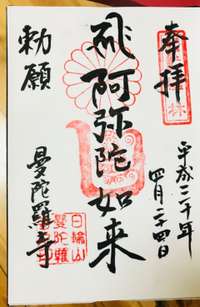 奉拝
平成三十年
四月二十四日
阿弥陀如来
勅願
曼陀羅寺
日輪山
曼陀羅